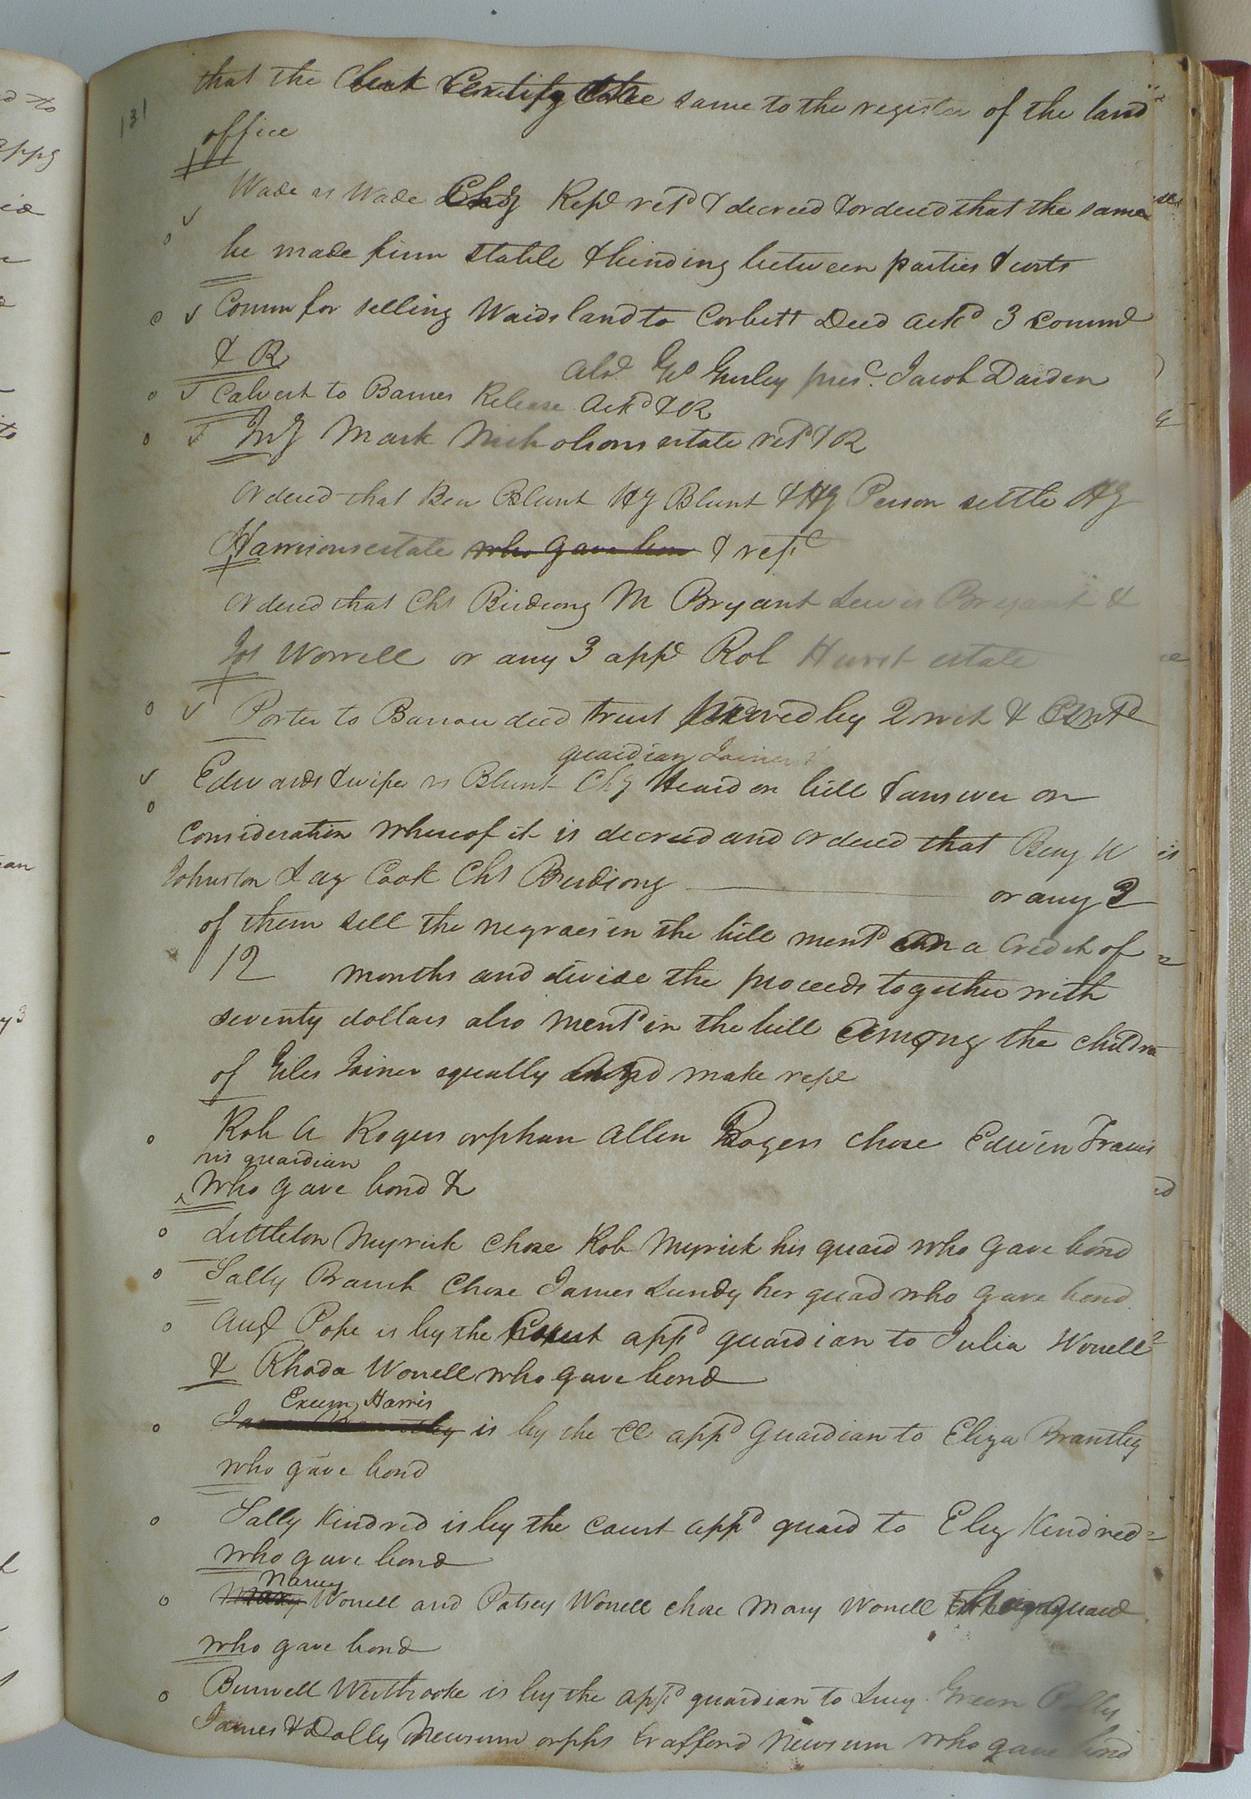 131
that the Clerk Certify the same to the register of the land
office
Wade vs Wade Chy Repd retd & decreed & ordered that the same
be made firm stable & binding between parties & costs
Comm for selling Waids land to Corbett Deed ackd 3 Commd
& R
absd Gurley pres. Jacob Darden
Calvert to Barnes Release ackd & R
Mark Nicholsons estate retd & R
Ordered that Ben Blunt Hy Blunt & Hy Person settle Hy
Harrisons estate who gave bon & rept
Ordered that Chs Birdsong M Bryant Lewis Bryant &
Jos Worrell or any 3 appd Rob Hurst estate
Porter to Barrow deed trust proved by 2 wit & Contd
guardian Joiner
Edwards & wife vs Blunt Chy Heard on bill & answer on
Consideration whereof it is decreed and ordered that Benj W
Johnston Lay Cook Chs Birdsong or any 3
of them sell the negroes in the bill mentd on a Credit of
12 months and divide the proceeds together with
seventy dollars also mentd in the bill among the children
of Giles Joiner equally and make rept
Rob A Rogers orphan Allen Rogers chose Edwin Travis
his guardian
who gave bond &
Littleton Myrick chose Rob Myrick his guard who gave bond
Sally Branch Chose James Lundy her guad who gave bond
Augt Pope is by the Court appd guardian to Julia Worrell
& Rhoda Worrell who gave bond
Exum Harris
is by the Ct appd Guardian to Eliza Brantley
who gave bond
Sally Kindred is by the Court appd guard to Eliz Kindred
who gave bond
Nancy
Mary Worrell and Patsey Worrell chose Mary Worrell their guard
who gave bond
Burwell Westbrooke is by the appd guardian to Lucy Green Polly
James & Dolly Newsum orphs Trafford Newsum who gave bond